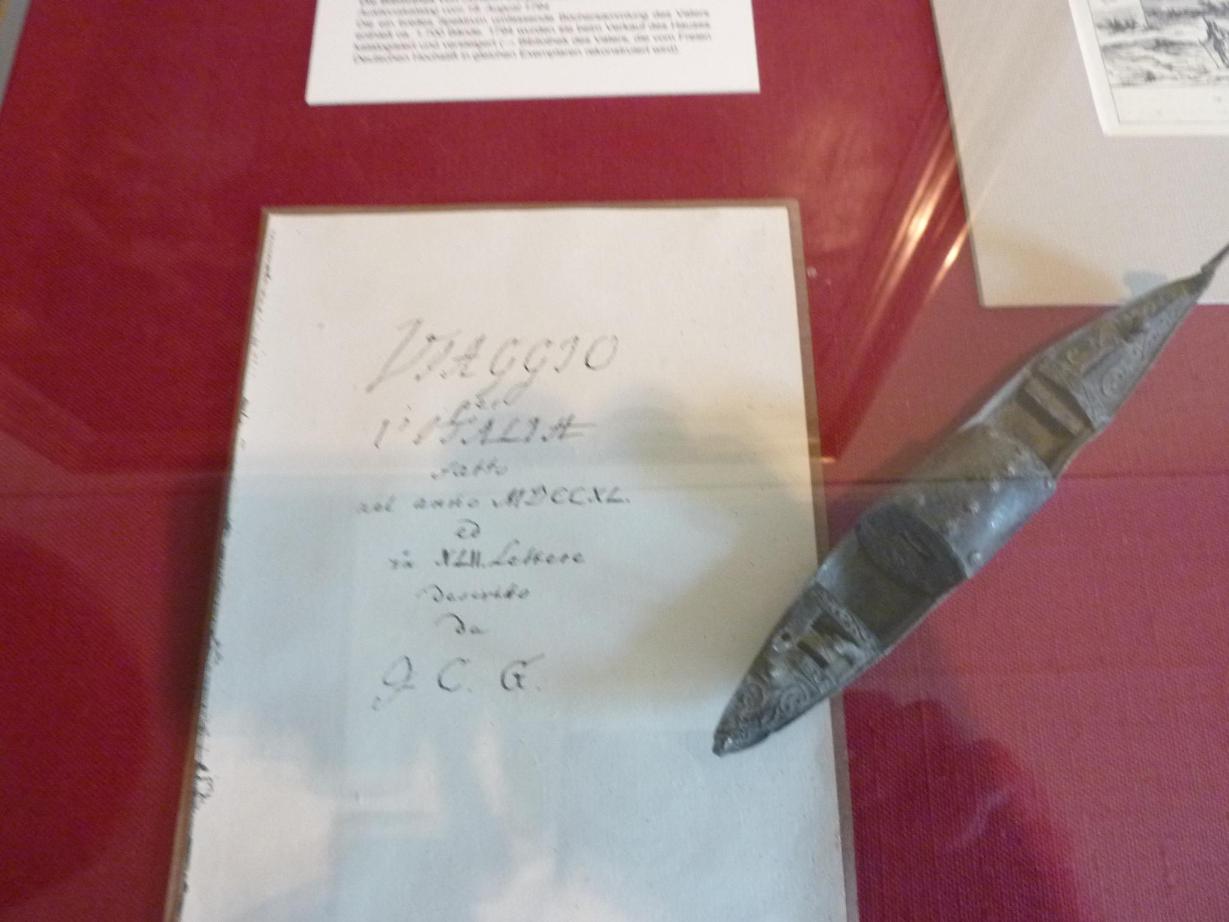 Auktionskatalog vom 18. August 1794
Die ein breites Spektrum umfassende Büchersammlung des Vaters
enthielt ca. 1.700 Bände. 1794 wurden sie beim Verkauf des Hauses
katalogisiert und versteigert (→ Bibliothek des Vaters, die vom Freien
Deutschen Hochstift in gleichen Exemplaren rekonstruiert wird).
VIAGGIO
per
l'ITALIA
fatto
nel anno MDCCXL.
ed
in XLII. Lettere
descritto
da
J. C. G.